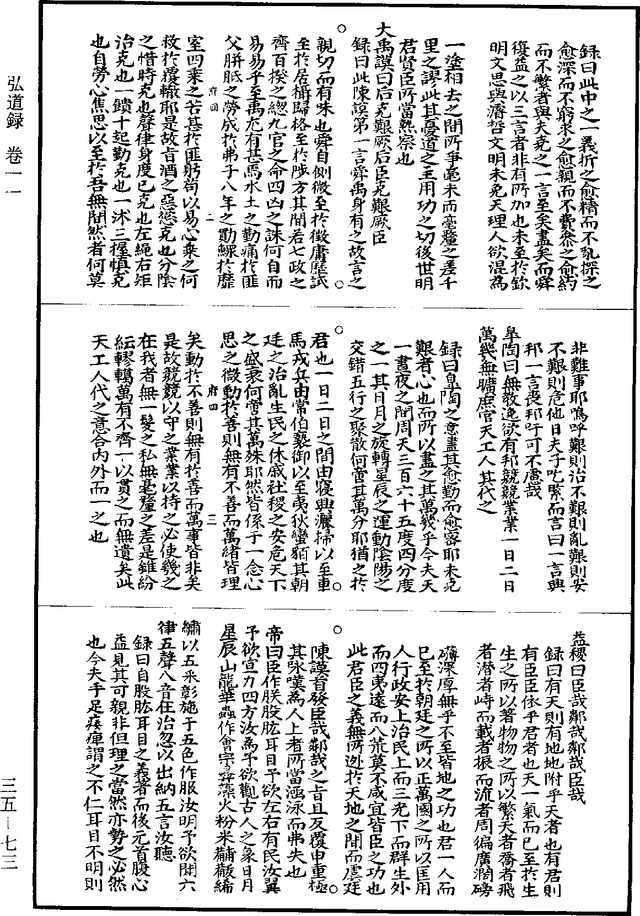 錄曰此中之一義折之愈精而不亂探之
愈深而不窮求之愈親而不費叅之愈約
而不繁者與夫堯之一言至矣盡矣而舜
復益之以三言者非有所加也未至於欽
明文思與濬哲文明未免天理人欲混為
一塗相去之間所爭毫末而毫釐之差千
里之謬此其憂道之主用功之切後世明
君賢臣所當熟察也
大禹謨曰后克艱厥后臣克艱厥臣
錄曰此陳謨第一言舜禹身有之故言之
親切而有味也舜自側微至於徵庸歷試
至於居攝歸格至於陟方其間若七政之
齊百揆之總九官之命四凶之誅何自而
易易乎至禹尤有甚焉水土之勤痛於匪
父胼胝之勞成於弗子八年之勩鰥於靡
府四 二
室四乘之苦甚於匪躬苟以易心乘之何
救於覆轍耶是故旨酒之惡慾克也分陰
之惜時克也聲律身度已克也左繩右矩
治克也一饋十起勤克也一沐三握慎克
也自勞心焦思以至於吾無間然者何莫
非難事耶嗚呼艱則治不艱則亂艱則安
不艱則危他日夫子吃緊而言曰一言興
邦一言喪邦吁可不慮哉
皐陶曰無敎逸欲有邦兢兢業業一日二日
萬幾無曠庶官天工人其代之
錄曰皐陶之意盡其愈勤而愈密耶未克
艱者心也而所以盡之其萬幾乎今夫天
一晝夜之間周天三百六十五度四分度
之一其日月之旋轉星辰之運動陰陽之
交錯五行之聚散何啻其萬分耶猶之於
君也一日二日之間由寢興灑掃以至車
馬戎兵由常伯褻御以至夷狄蠻貊其朝
廷之治亂生民之休戚社稷之安危天下
之盛衰何啻其萬殊耶然皆係于一念心
思之微動於善則無有不善而萬緒皆理
府四 三
矣動於不善則無有於善而萬事皆非矣
是故兢兢以守之業業以持之必使幾之
在我者無一髮之私無毫釐之差是錐紛
紜轇轕萬有不齊一以貫之而無遺矣此
天工人代之意合內外而一之也
益稷曰臣哉鄰哉鄰哉臣哉
錄曰有天則有地地附乎天者也有君則
有臣臣依乎君者也天一氣而已至於生
生之所以著物物之所以繁天者喬者飛
者潛者峙而載者振而流者周徧廣濶磅
礴深厚無乎不至皆地之功也君一人而
已至於朝廷之所以正萬國之所以匡用
人行政安上治民上而三光下而群生外
而四夷遠而八荒莫不咸宜皆臣之功也
此君臣之義無所逃於天地之間而虞廷
陳謨首發臣哉鄰哉之旨且反覆申重極
其詠嘆為人上者所當涵泳而弗失也
帝曰臣作朕股肱耳目予欲左右有民汝翼
予欲宣力四方汝為予欲觀古人之象日月
星辰山龍華蟲作會宗彝藻火粉米黼黻絺
繡以五采彰施于五色作服汝明予欲聞六
律五聲八音在治忽以出納五言汝聽
錄曰自股肱耳目之義著而後元首腹心
益見其可親非但理之當然亦勢之必然
也今夫手足痿痺謂之不仁耳目不明則
弘道錄 卷一一
三五-七三